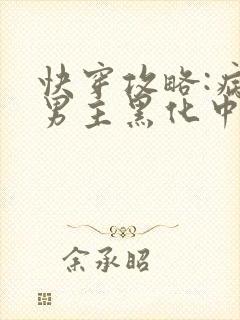 快穿攻略:病
男主黑化中
余承昭